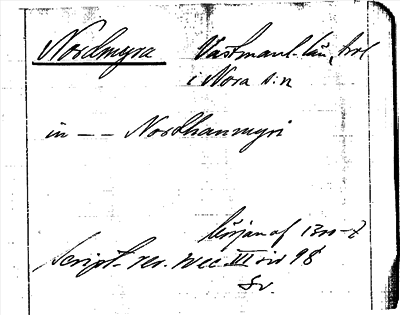 Nordmyra Västmanl. län,
i Nora s:n
in -- Nordhanmyri
början af 1300-t
Script. rer. svec. III sid 98
Sv.